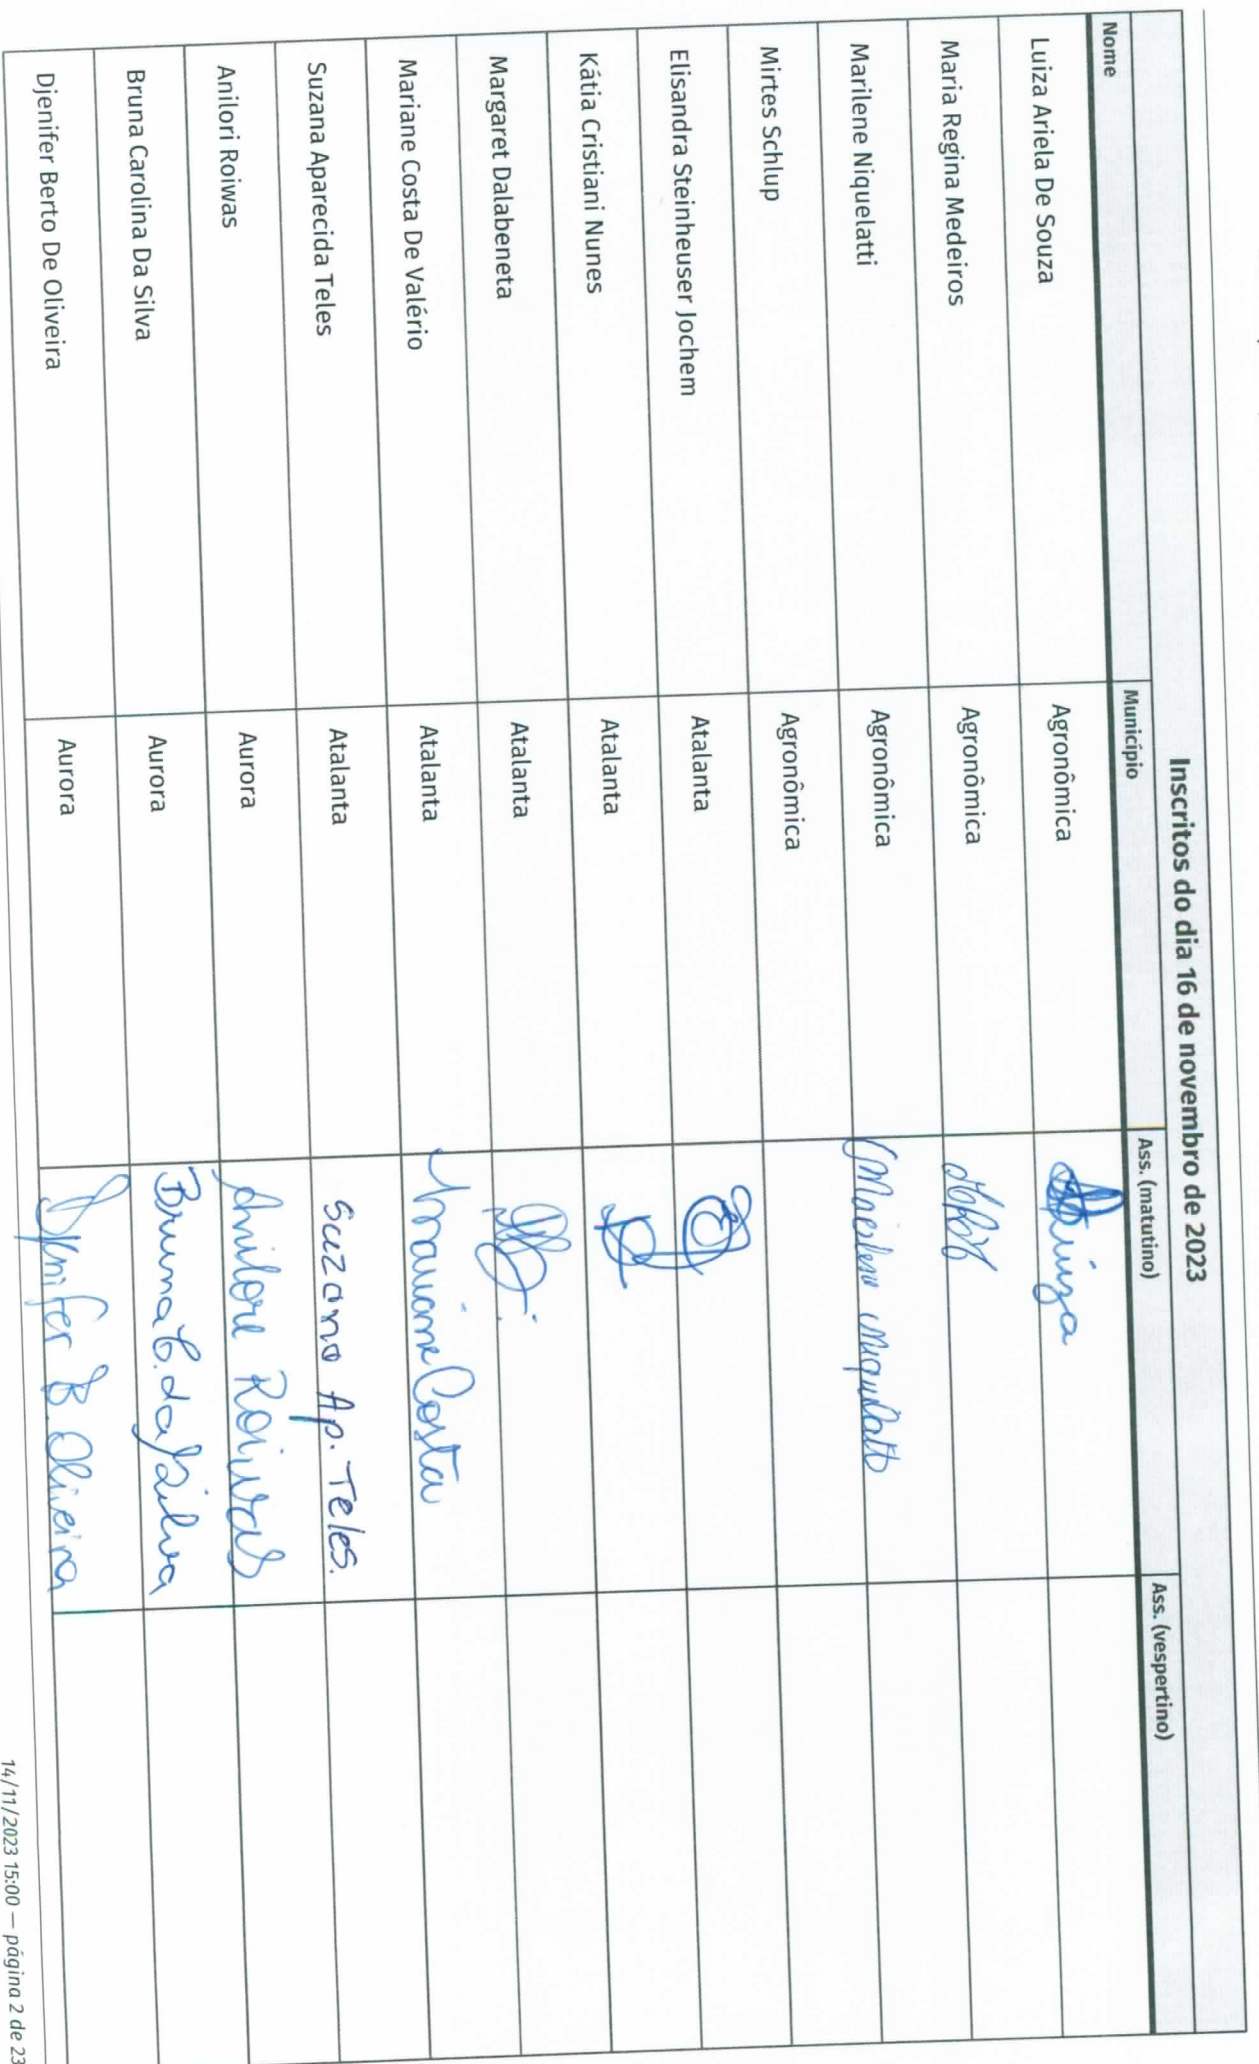 Inscritos do dia 16 de novembro de 2023
Nome Município Ass. (matutino) Ass. (vespertino)
Luiza Ariela De Souza Agronômica Luiza
Maria Regina Medeiros Agronômica
Marilene Niquelatti Agronômica
Mirtes Schlup Agronômica
Elisandra Steinheuser Jochem Atalanta
Kátia Cristiani Nunes Atalanta
Margaret Dalabeneta Atalanta
Mariane Costa De Valério Atalanta Mariane Costa
Suzana Aparecida Teles Atalanta Suzana Ap. Teles.
Anilori Roiwas Aurora Anilore Roiwas
Bruna Carolina Da Silva Aurora Bruna C. da Silva
Djenifer Berto De Oliveira Aurora Djenifer B. Oliveira
14/11/2023 15:00 — página 2 de 23